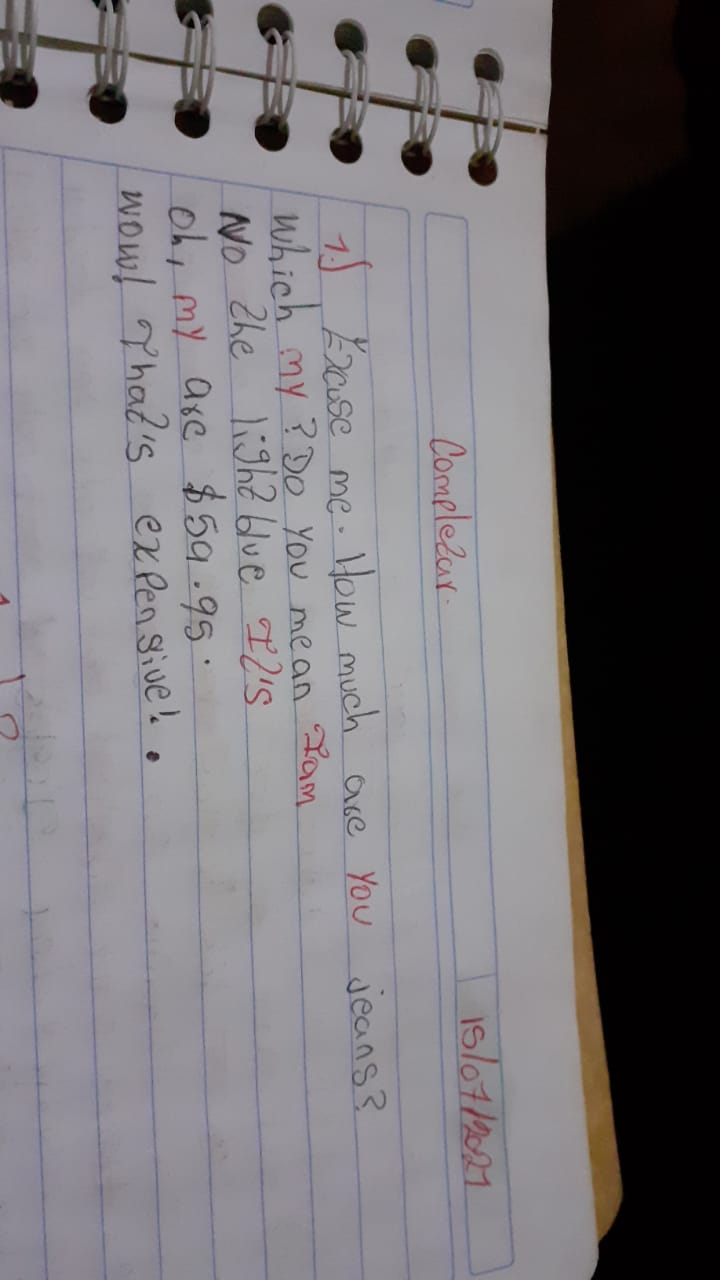 Completar.
15/07/2021
1.) Excuse me. How much are you jeans?
Which my? Do you mean Iam
No the light blue It's
oh, my are $59.95.
wow! That's expensive!.